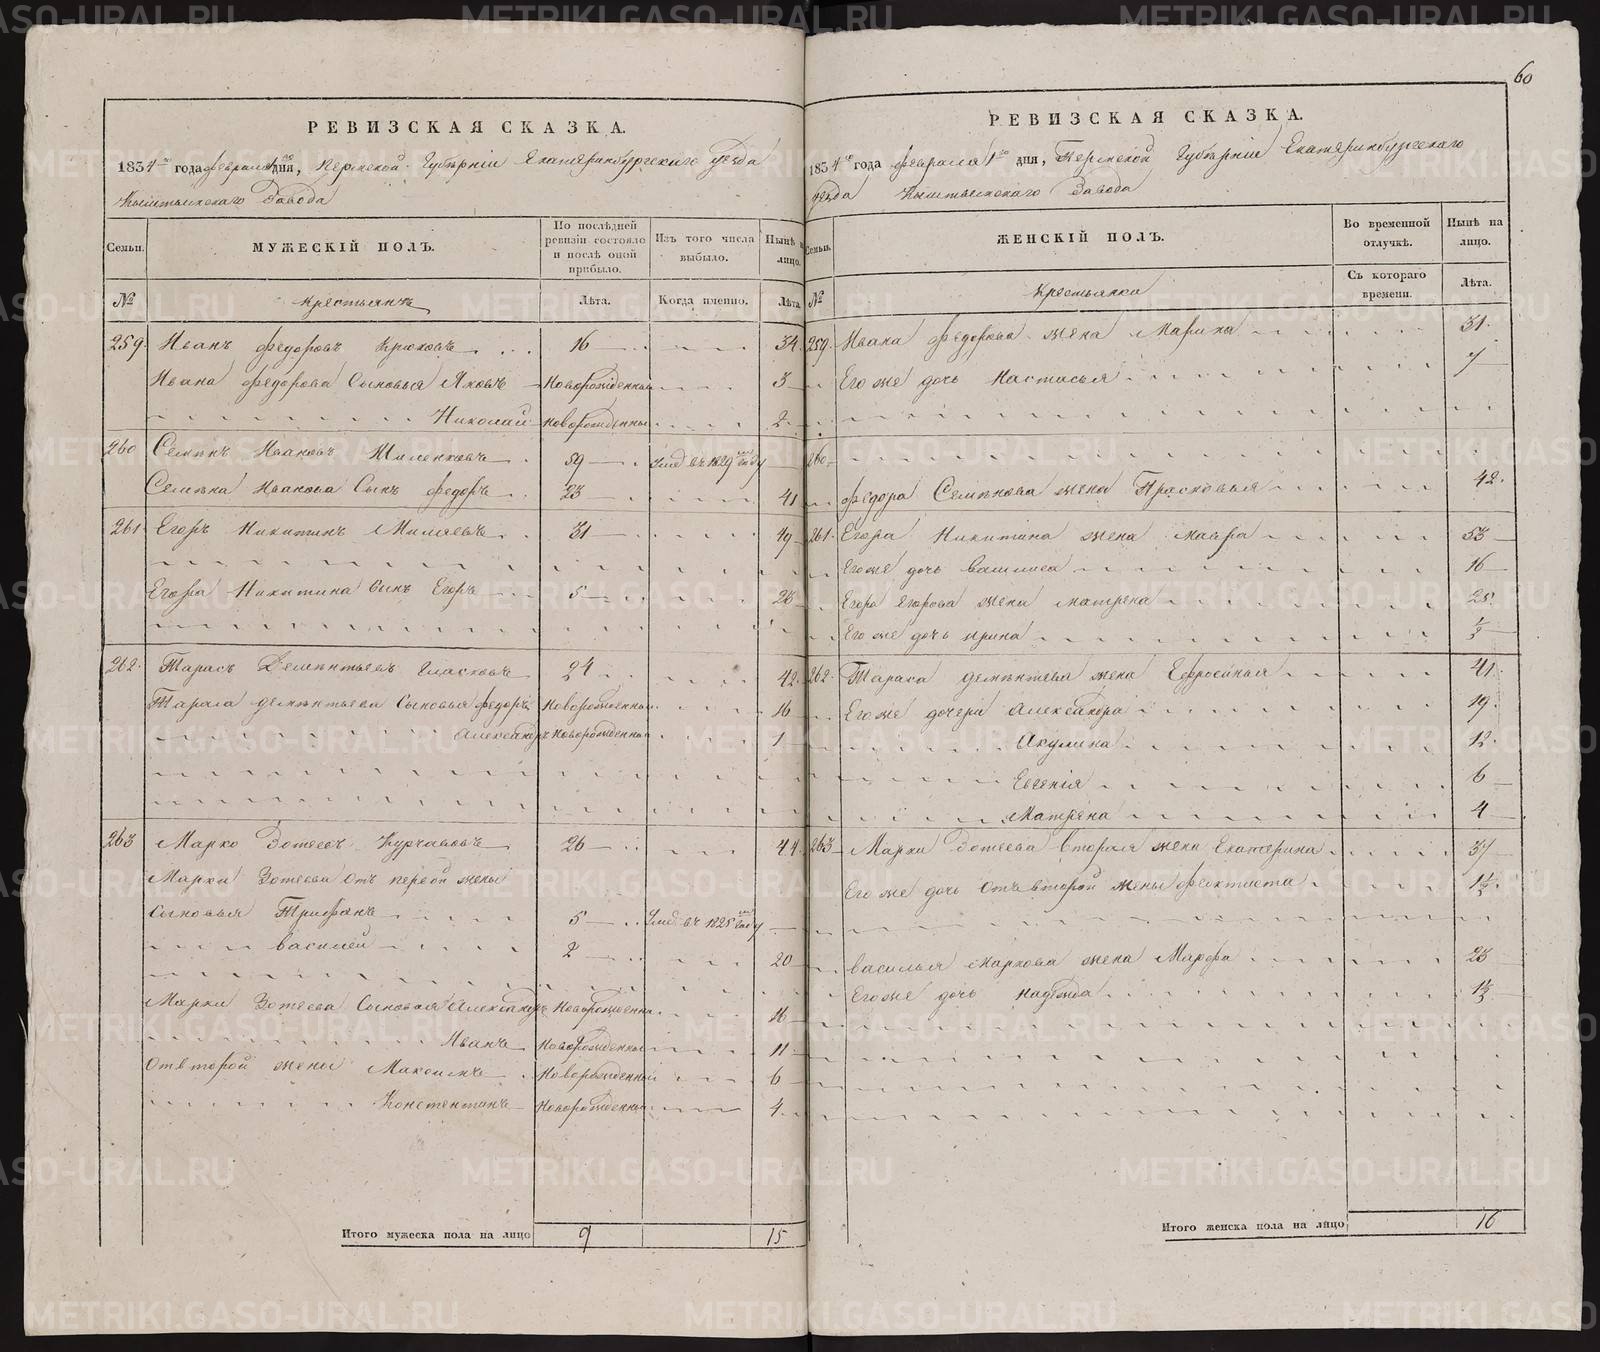 60
РЕВИЗСКАЯ СКАЗКА.
1834 го года февраля 1 го дня, Пермской Губернiи Екатеринбургскаго уезда
Кыштымскаго Завода
Семьи.
МУЖЕСКIЙ ПОЛЪ.
По последней ревизiи состояло и после оной прибыло.
Изъ того числа выбыло.
Ныне на лицо.
№
Крестьянъ
Лета.
Когда именно.
Лета
259. Иванъ Федоровъ Крюковъ 16 34.
Ивана Федорова Сыновья Яковъ Новорожденный 3
Николай новорожденный 2
260 Семенъ Ивановъ 59 Умре въ 1829 году
Семена Иванова Сынъ Федоръ 23 41
261. Егоръ Никитинъ Миляевъ 31 49
Егора Никитина Сынъ Егоръ 5 23
262. Тарасъ Дементьевъ Гласковъ 24 42.
Тараса Дементьева Сыновья Федоръ Новорожденный 16
Александръ Новорожденный 1
263 Марко Зотеевъ Курчавовъ 26 44
Марка Зотеева Отъ первой жены
Сыновья Трифонъ 5 Умре въ 1825 году
Василей 2 20
Марки Зотеева Сыновья Александръ Новорожденны 16
Иванъ Новорожденный 11
Отвторой жены Максимъ Новорожденный 6
Констентинъ Новорожденный 4.
Итого мужеска пола на лицо 9 15
РЕВИЗСКАЯ СКАЗКА.
1834 го года февраля 1 го дня, Пермской Губернiи Екатеринбургскаго
уезда Кыштымскаго Завода
Семьи.
ЖЕНСКIЙ ПОЛЪ.
Во временной отлучке.
Ныне на лицо.
№
Крестьянка
Съ котораго времени.
Лета.
259. Ивана Федорова жена Марина 31.
Его же дочь Настасья 7
260
Федора Семенова жена Прасковья 42.
261. Егора Никитина жена Мавра 53
Его же дочь Василиса 16
Егора Егорова жена Матрена 25.
Его же дочь Ирина 1/2
262. Тараса Дементева жена Ефросинья 41
Его же дочери Александра 19.
Акулина 12.
Евгенiя 6
Матрена 4
263 Марки Зотеева вторая жена Екатерина 37
Его же дочь Отъ второй жены Феоктиста 1 1/2.
Василья Маркова жена Марфа 23
Его же дочь Надежда 1 1/2
Итого женска пола на лицо 16
METRIKI.GASO-URAL.RU